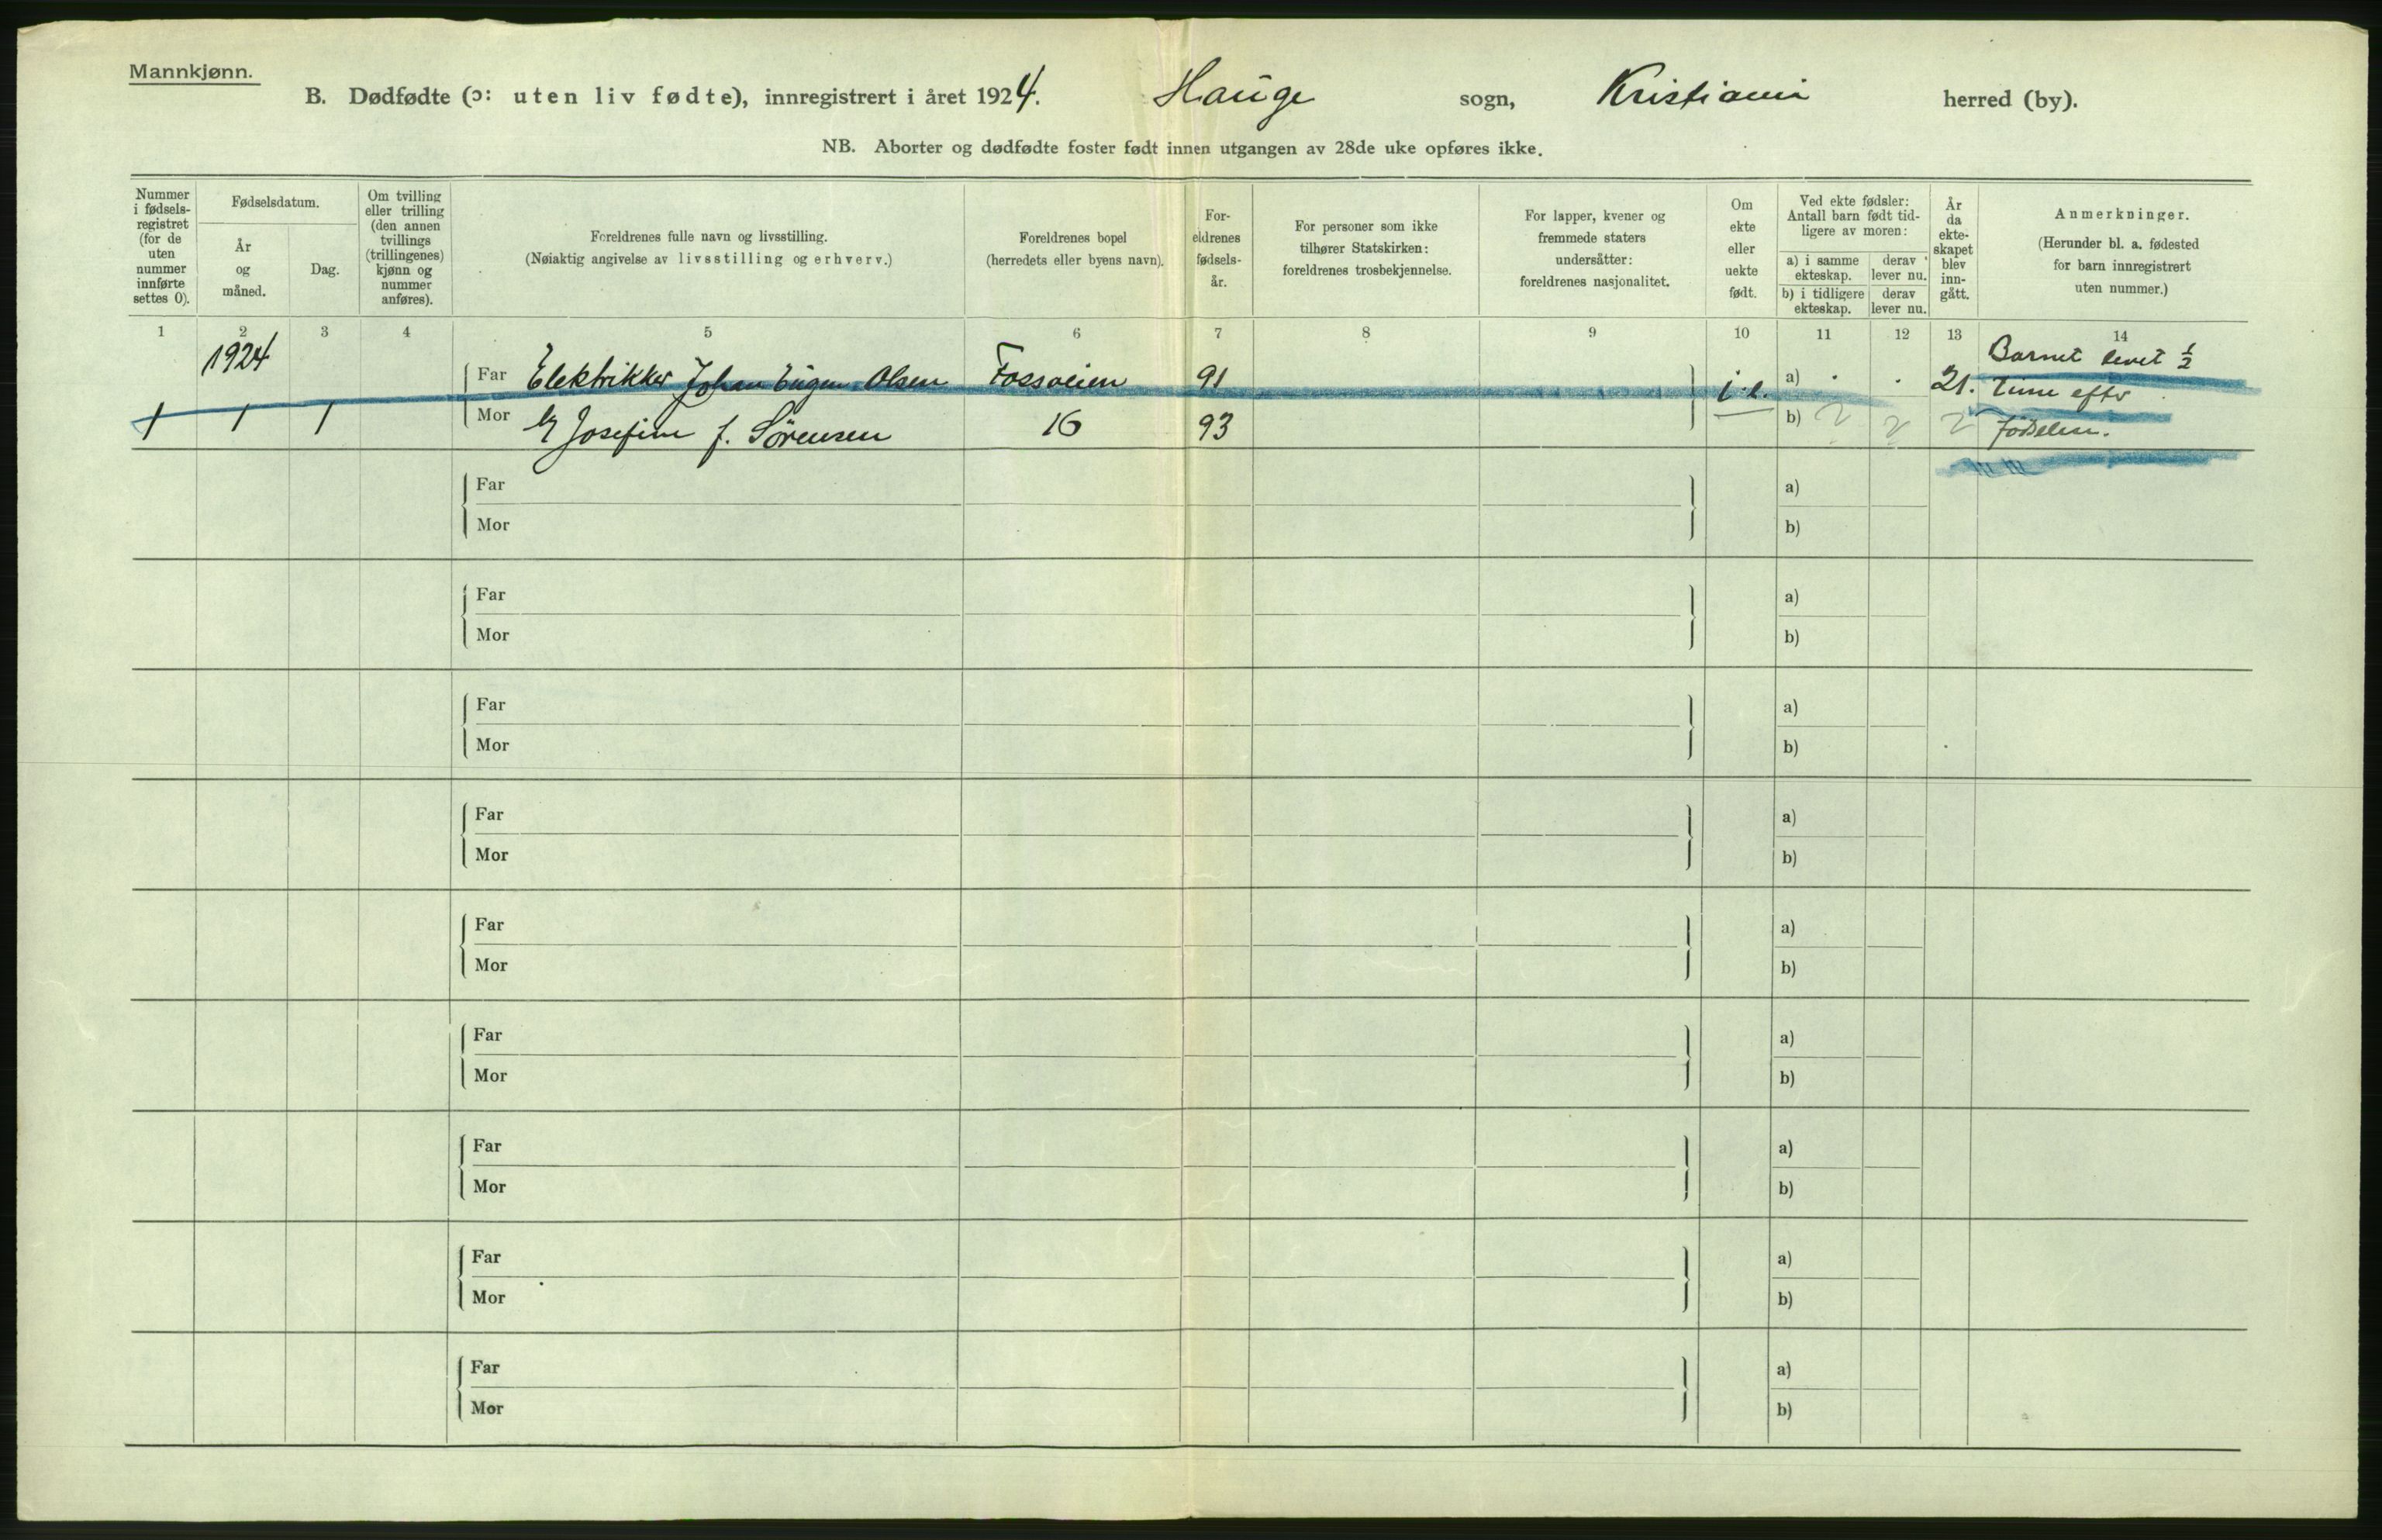 Mannkjønn.
B. Dødfødte (ɔ: uten liv fødte), innregistrert i året 1924. Hauge sogn, Kristiania herred (by).
NB. Aborter og dødfødte foster født innen utgangen av 28de uke opføres ikke.
Nummer i fødsels-registret (for de uten nummer innførte settes 0).
Fødselsdatum.
År og måned.
Dag.
Om tvilling eller trilling (den annen tvillings (trillingenes) kjønn og nummer anføres).
Foreldrenes fulle navn og livsstilling.
(Nøiaktig angivelse av livsstilling og erhverv.)
Foreldrenes bopel
(herredets eller byens navn).
For-eldrenes fødsels-år.
For personer som ikke tilhører Statskirken: foreldrenes trosbekjennelse.
For lapper, kvener og fremmede staters undersåtter: foreldrenes nasjonalitet.
Om ekte eller uekte født.
Ved ekte fødsler: Antall barn født tid-ligere av moren:
a) i samme ekteskap.
derav lever nu.
b) i tidligere ekteskap.
derav lever nu.
År da ekte-skapet blev inn-gått.
Anmerkninger.
(Herunder bl. a. fødested for barn innregistrert uten nummer.)
1 2 3 4 5 6 7 8 9 10 11 12 13 14
1924
Far Elektriker Johan Eugen Olsen Fossveien 91 a) 21. Barnet levet ½
Time efter
1 1 1 Mor Josefine f. Sørensen 16 93 b) fødselen.
Far a)
Mor b)
Far a)
Mor b)
Far a)
Mor b)
Far a)
Mor b)
Far a)
Mor b)
Far a)
Mor b)
Far a)
Mor b)
Far a)
Mor b)
Far a)
Mor b)